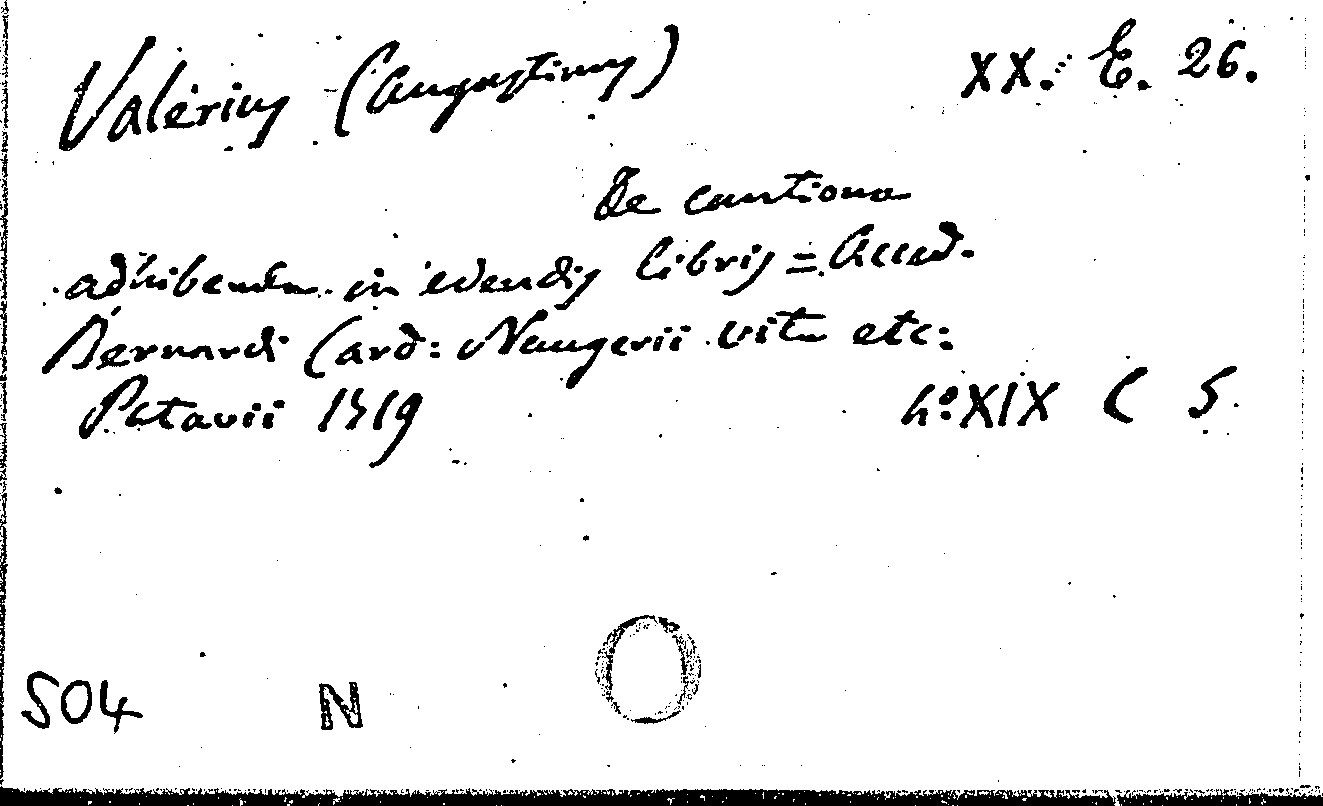 Valerius (Augustinus) XX. E. 26.
De cautione
adhibenda in edendis libris = Acced.
Bernardi Card: Naugerii vita etc:
Patavii 1719 4º XIX C 5.
S04 N